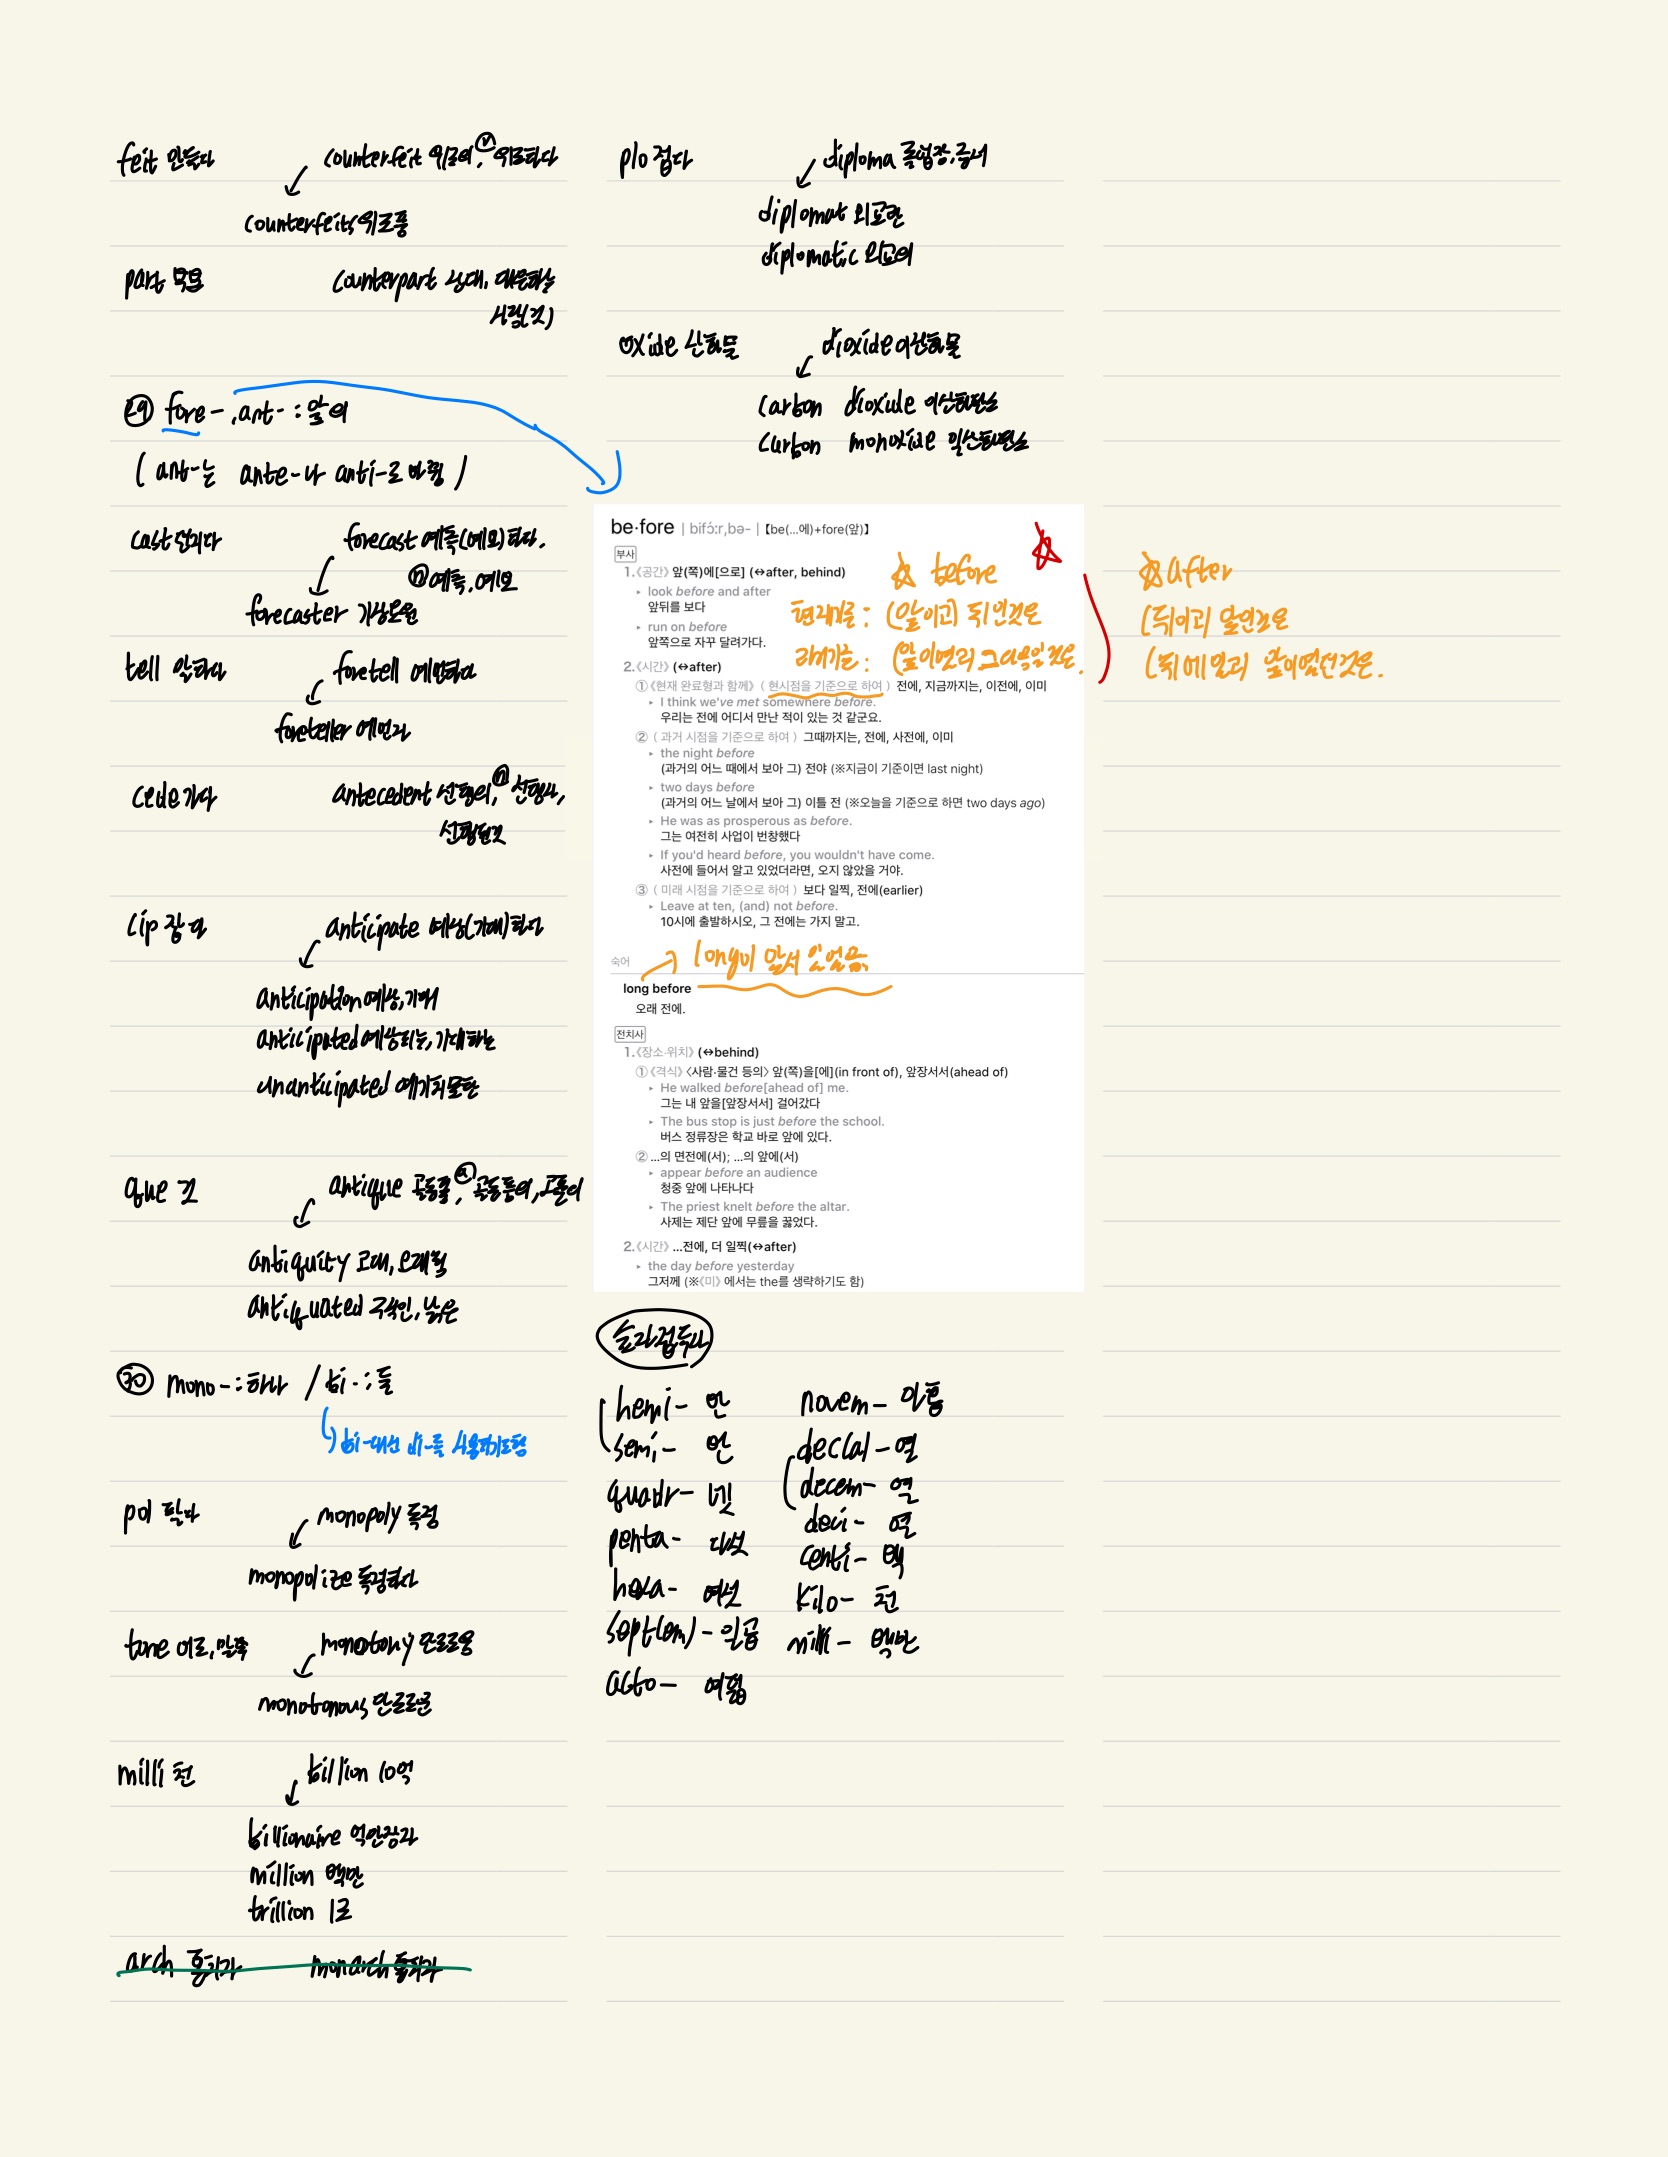 feit 만들다
counterfeit 위조의, ⓥ위조하다
counterfeits 위조품
part 부분
counterpart 상대, 대응하는
사람(것)
㉙ fore-, ant- : 앞의
( ant-는 ante-나 anti-로 바뀜 )
cast 던지다
forecast 예측(예보)하다.
ⓝ예측, 예보
forecaster 기상요원
tell 말하다
foretell 예언하다
foreteller 예언자
cede 가다
antecedent 선행의, ⓝ선행사,
선행된것
cip 잡다
anticipate 예상(기대)하다
anticipation 예상, 기대
anticipated 예상되는, 기대하는
unanticipated 예기치못한
que 것
antique 골동품, ⓐ골동품의, 고풍의
antiquity 고대, 오래됨
antiquated 구식인, 낡은
㉚ mono- : 하나 / bi- : 둘
bi-대신 di-를 사용하기도함
pol 팔다
monopoly 독점
monopolize 독점하다
tone 어조, 말투
monotony 단조로움
monotonous 단조로운
milli 천
billion 10억
billionaire 억만장자
million 백만
trillion 1조
arch 통치자
monarch 통치자
plo 접다
diploma 졸업장, 증서
diplomat 외교관
diplomatic 외교의
oxide 산화물
dioxide 이산화물
Carbon dioxide 이산화탄소
Carbon monoxide 일산화탄소
be·fore | bifɔ́ːr,bə- |【be(...에)+fore(앞)】
부사
1.《공간》 앞(쪽)에[으로] (↔after, behind)
▸ look before and after
앞뒤를 보다
▸ run on before
앞쪽으로 자꾸 달려가다.
☆ before
현재기준 : (앞이고) 뒤인것은
과거기준 : (앞이면리 그다음일 것은.
2.《시간》 (↔after)
①《현재 완료형과 함께》 ( 현시점을 기준으로 하여 ) 전에, 지금까지는, 이전에, 이미
▸ I think we've met somewhere before.
우리는 전에 어디서 만난 적이 있는 것 같군요.
② ( 과거 시점을 기준으로 하여 ) 그때까지는, 전에, 사전에, 이미
▸ the night before
(과거의 어느 때에서 보아 그) 전야 (※지금이 기준이면 last night)
▸ two days before
(과거의 어느 날에서 보아 그) 이틀 전 (※오늘을 기준으로 하면 two days ago)
▸ He was as prosperous as before.
그는 여전히 사업이 번창했다
▸ If you'd heard before, you wouldn't have come.
사전에 들어서 알고 있었더라면, 오지 않았을 거야.
③ ( 미래 시점을 기준으로 하여 ) 보다 일찍, 전에(earlier)
▸ Leave at ten, (and) not before.
10시에 출발하시오, 그 전에는 가지 말고.
long이 앞서 있었음.
숙어
long before
오래 전에.
전치사
1.《장소·위치》 (↔behind)
①《격식》〈사람·물건 등의〉 앞(쪽)을[에](in front of), 앞장서서(ahead of)
▸ He walked before[ahead of] me.
그는 내 앞을[앞장서서] 걸어갔다
▸ The bus stop is just before the school.
버스 정류장은 학교 바로 앞에 있다.
② ...의 면전에(서); ...의 앞에(서)
▸ appear before an audience
청중 앞에 나타나다
▸ The priest knelt before the altar.
사제는 제단 앞에 무릎을 꿇었다.
2.《시간》 ...전에, 더 일찍(↔after)
▸ the day before yesterday
그저께 (※《미》 에서는 the를 생략하기도 함)
☆ after
(뒤이고 앞인것은
(뒤에 앞이었던것은.
숫자접두사
hemi- 반
semi- 반
quadr- 넷
penta- 다섯
hexa- 여섯
sept(em)- 일곱
octo- 여덟
novem- 아홉
dec(a)- 열
decem- 열
deci- 열
centi- 백
kilo- 천
milli- 백만